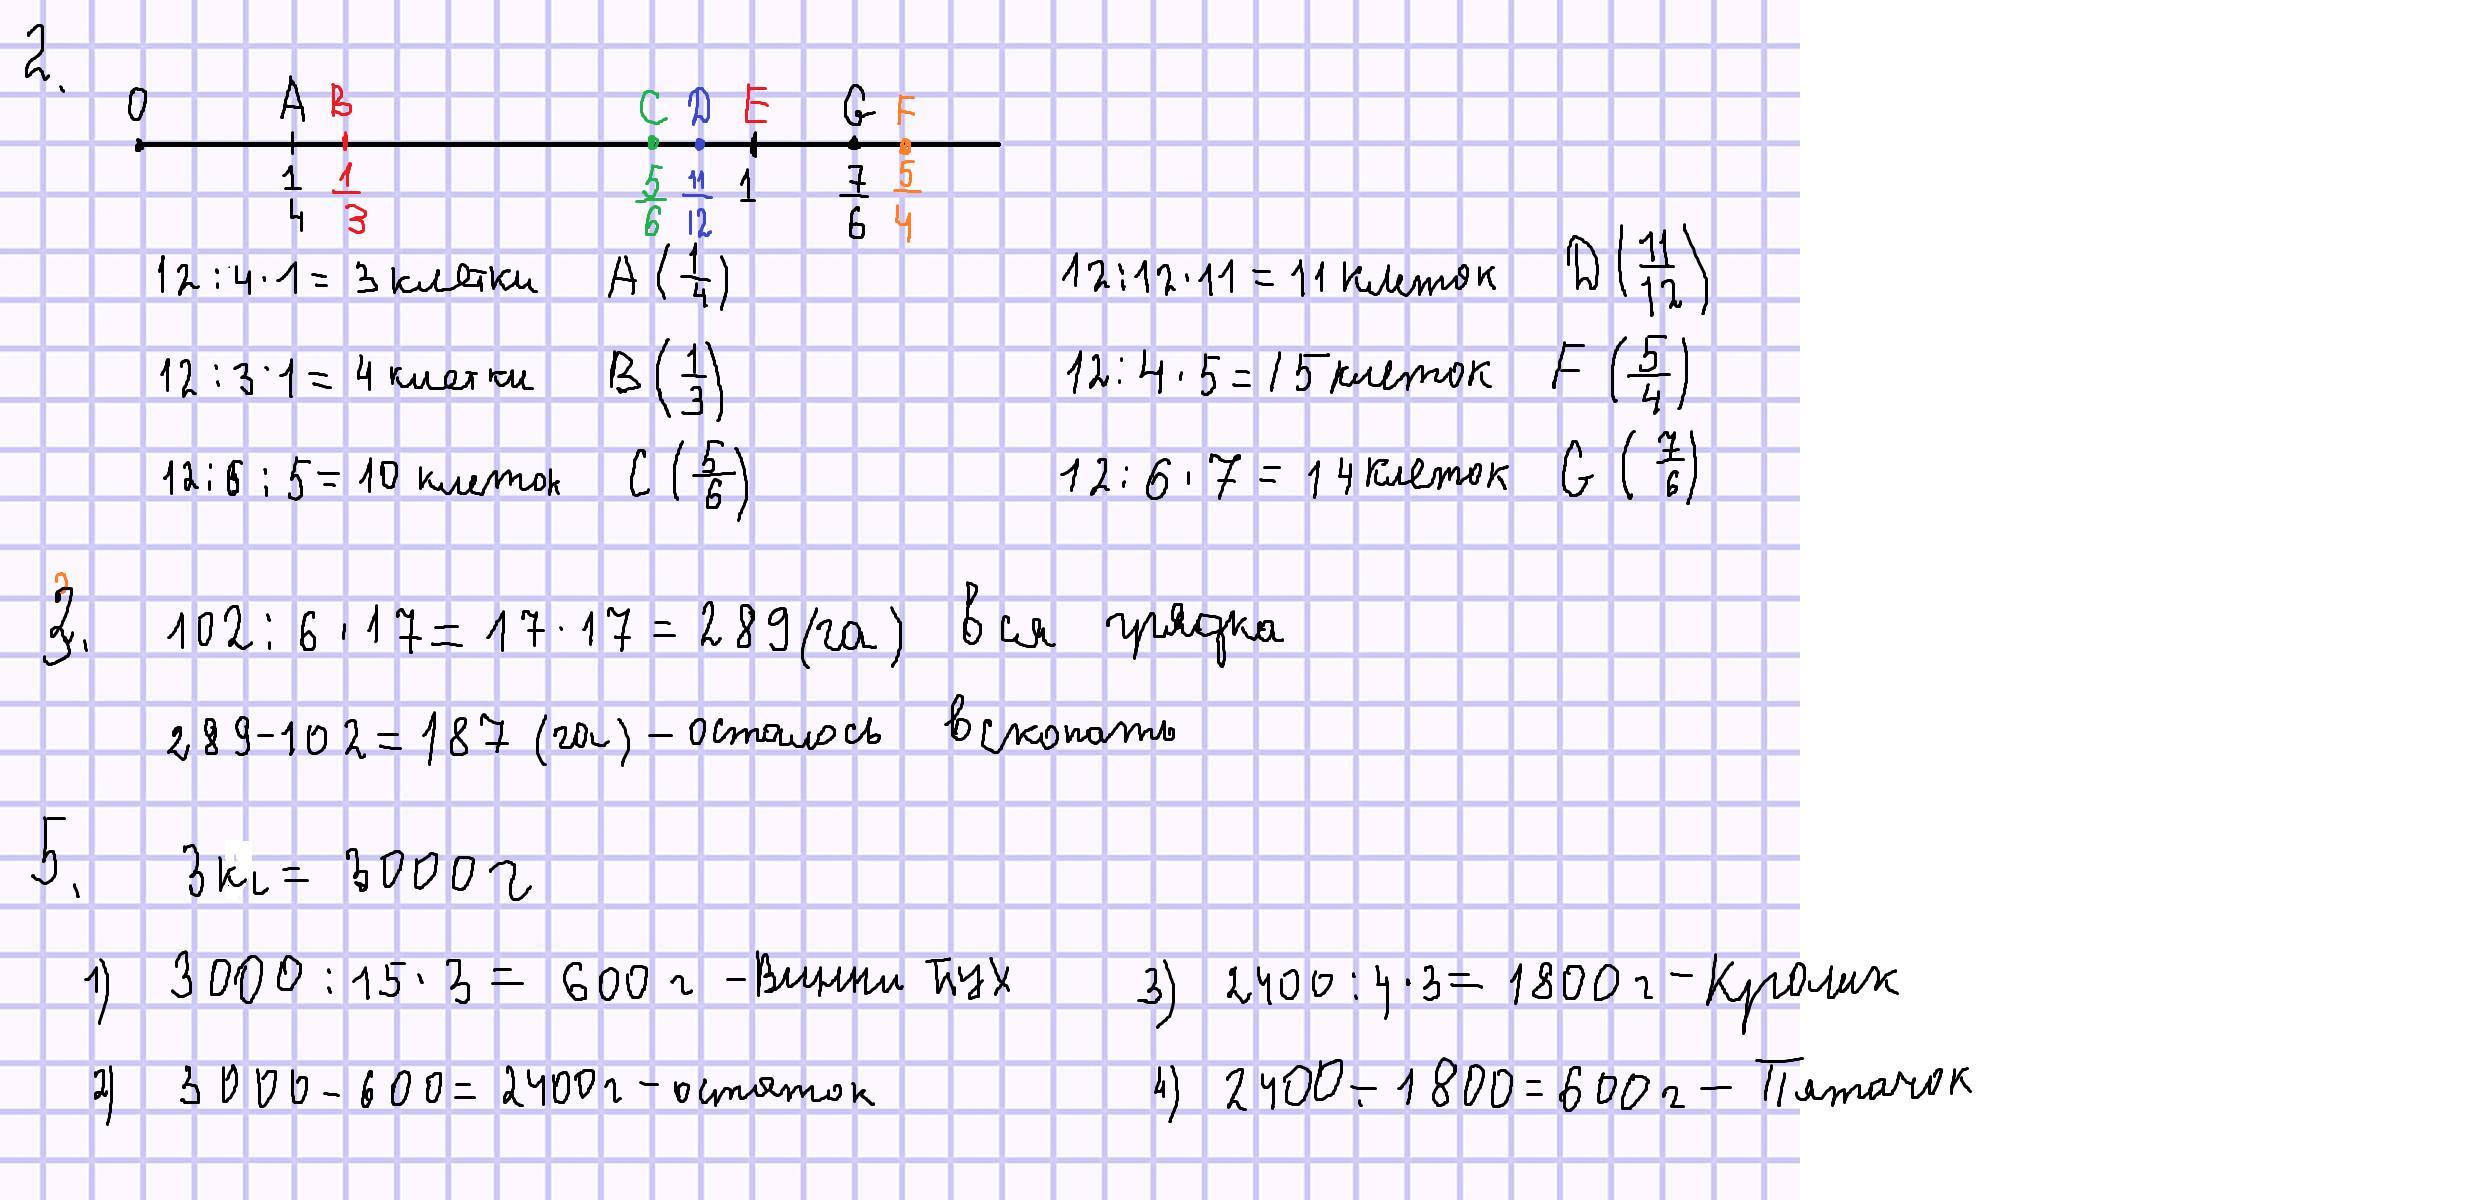 2.
O A B C D E G F
1/4 1/3 5/6 11/12 1 7/6 5/4
12:4·1= 3 клетки A (1/4)
12:3·1= 4 клетки B (1/3)
12:6:5= 10 клеток C (5/6)
12:12·11 = 11 клеток D (11/12)
12:4·5=15 клеток F (5/4)
12:6·7 = 14 клеток G (7/6)
3. 102:6·17= 17·17 = 289 (га) вся грядка
289-102=187 (га) – осталось вскопать
5. 3 кг = 3000 г
1) 3000:15·3 = 600 г - Винни Пух
2) 3000-600=2400 г - остаток
3) 2400:4·3= 1800 г - Кролик
4) 2400-1800=600 г - Пятачок